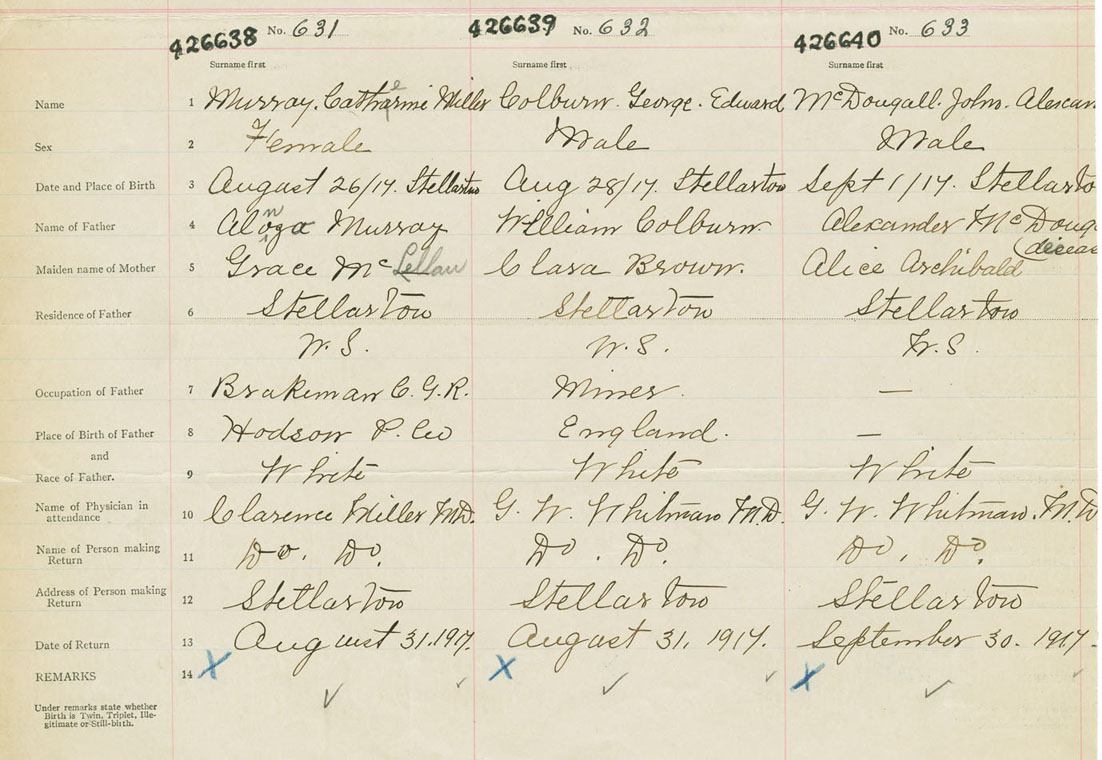 426638 No. 631 426639 No. 632 426640 No. 633
Surname first Surname first Surname first
Name 1 Murray. Catharine Miller Colburn. George. Edward McDougall. John. Alexan
Sex 2 Female Male Male
Date and Place of Birth 3 August 26/17. Stellarton Aug 28/17. Stellarton Sept 1/17. Stellarto
Name of Father 4 Murray William Colburn Alexander McDoug
(deceas
Maiden name of Mother 5 Grace McLellan Clara Brown. Alice Archibald
Residence of Father 6 Stellarton Stellarton Stellarton
N.S. N.S. N.S.
Occupation of Father 7 Brakeman C.G.R. Miner —
Place of Birth of Father 8 Hodson P. Co England. —
and
Race of Father. 9 White White White
Name of Physician in
attendance 10 Clarence Miller M.D. G. W. Whitman M.D. G. W. Whitman. M.D
Name of Person making
Return 11 Do. Do. Do. Do. Do. Do.
Address of Person making
Return 12 Stellarton Stellarton Stellarton
Date of Return 13 August 31. 1917. August 31. 1917. September 30. 1917.
REMARKS 14 X X X
Under remarks state whether
Birth is Twin, Triplet, Ille-
gitimate or Still-birth.